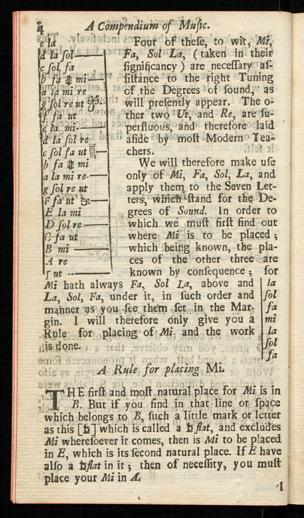 A Compendium of Musick.
e la
d la sol
c sol fa
b fa mi
a la mi re
g sol re ut
f fa ut
e la mi
d la sol re
c sol fa ut
b fa mi
a la mi re
g sol re ut
F fa ut
E la mi
D sol re
C fa ut
B mi
A re
Γ ut
Four of these, to wit, Mi,
Fa, Sol La, (taken in their
significancy) are necessary as-
sistance to the right Tuning
of the Degrees of sound, as
will presently appear. The o-
ther two Ut, and Re, are su-
perfluous, and therefore laid
aside by most Modern Tea-
chers.
We will therefore make use
only of Mi, Fa, Sol, La, and
apply them to the Seven Let-
ters, which stand for the De-
grees of Sound. In order to
which we must first find out
where Mi is to be placed;
which being known, the pla-
ces of the other three are
known by consequence; for
Mi hath always Fa, Sol La, above and
La, Sol, Fa, under it, in such order and
manner as you see them set in the Mar-
gin. I will therefore only give you a
Rule for placing of Mi and the work
is done.
la
sol
fa
mi
la
sol
fa
A Rule for placing Mi.
THE first and most natural place for Mi is in
B. But if you find in that line or space
which belongs to B, such a little mark or letter
as this [♭] which is called a ♭ flat, and excludes
Mi wheresoever it comes, then is Mi to be placed
in E, which is its second natural place. If E have
also a ♭ flat in it; then of necessity, you must
place your Mi in A.